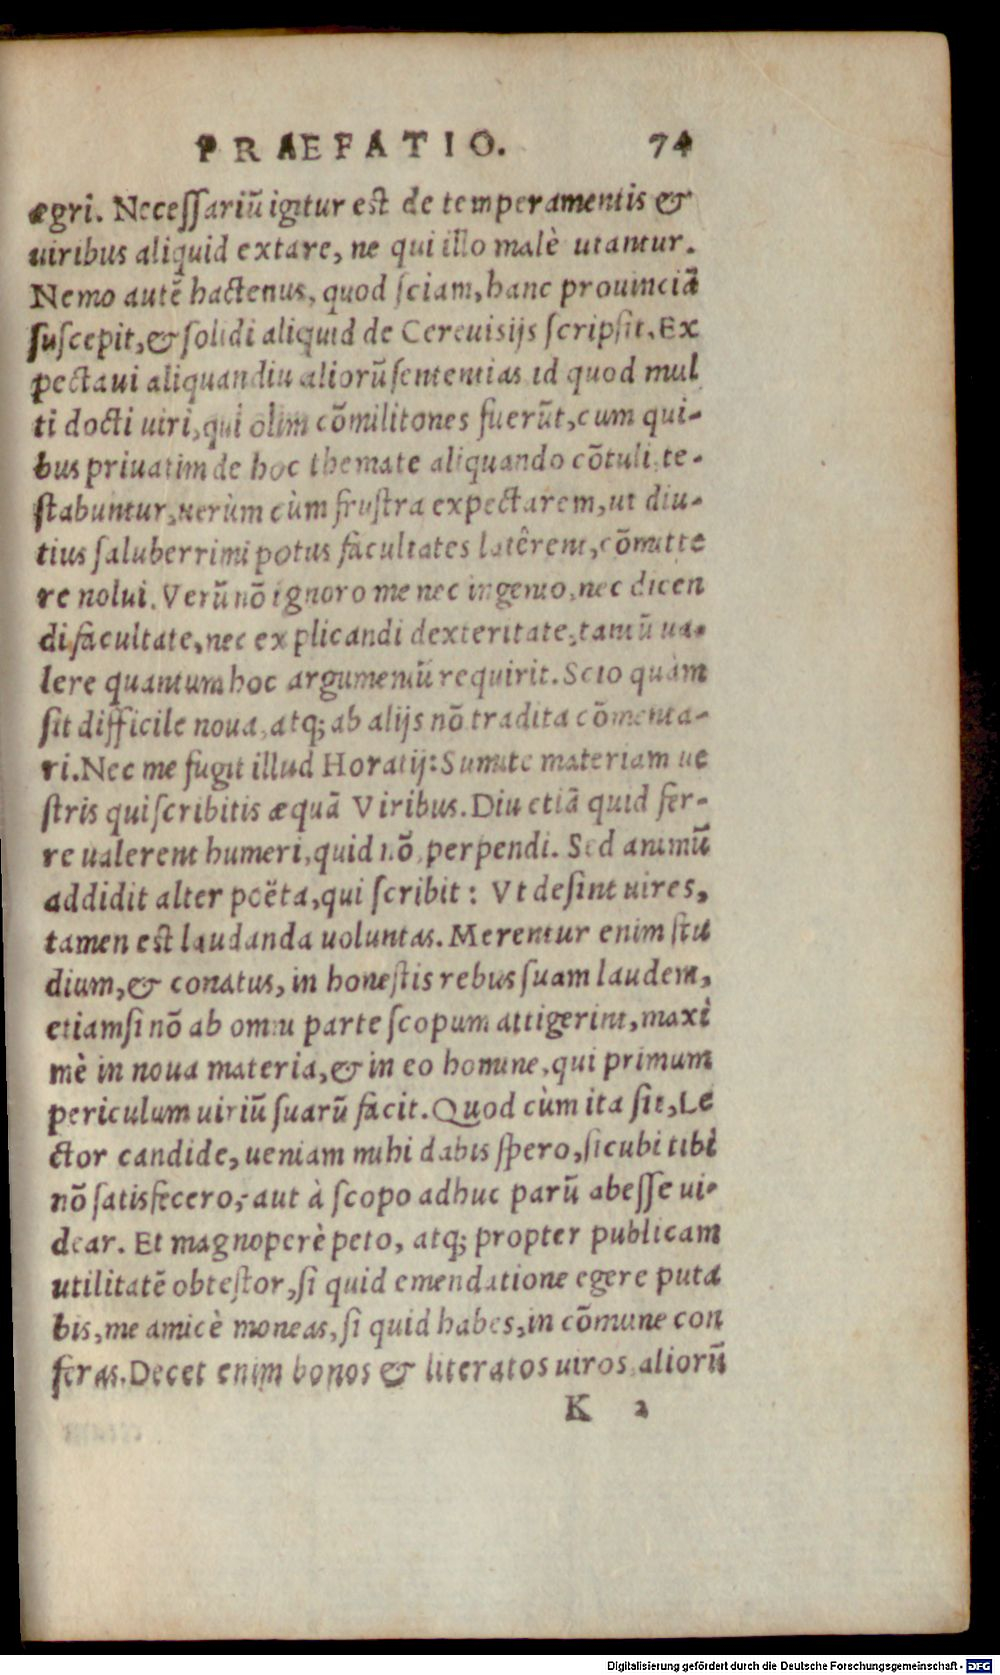 PRAEFATIO. 74
ægri. Necessariũ igitur est de temperamentis &
uiribus aliquid extare, ne qui illo malè utantur.
Nemo autẽ hactenus, quod sciam, hanc prouinciã
suscepit, & solidi aliquid de Cereuisijs scripsit. Ex
pectaui aliquandiu aliorũ sententias id quod mul
ti docti uiri, qui olim cõmilitones fuerũt, cum qui-
bus priuatim de hoc themate aliquando cõtuli, te-
stabuntur, uerùm cùm frustra expectarem, ut diu-
tius saluberrimi potus facultates latêrent, cõmitte
re nolui. Verũ nõ ignoro me nec ingenio, nec dicen
di facultate, nec explicandi dexteritate, tantũ ua-
lere quantum hoc argumentũ requirit. Scio quàm
sit difficile noua, atq; ab alijs nõ tradita cõmenta-
ri. Nec me fugit illud Horatij: Sumite materiam ue
stris qui scribitis æquã Viribus. Diu etiã quid fer-
re ualerent humeri, quid nõ, perpendi. Sed animũ
addidit alter poëta, qui scribit: Vt desint uires,
tamen est laudanda uoluntas. Merentur enim stu
dium, & conatus, in honestis rebus suam laudem,
etiamsi nõ ab omni parte scopum attigerint, maxi
mè in noua materia, & in eo homine, qui primum
periculum uiriũ suarũ facit. Quod cùm ita sit, Le
ctor candide, ueniam mihi dabis spero, sicubi tibi
nõ satisfecero, aut à scopo adhuc parũ abesse ui-
dear. Et magnoperè peto, atq; propter publicam
utilitatẽ obtestor, si quid emendatione egere puta
bis, me amicè moneas, si quid habes, in cõmune con
feras. Decet enim bonos & literatos uiros, aliorũ
K 2
Digitalisierung gefördert durch die Deutsche Forschungsgemeinschaft - DFG